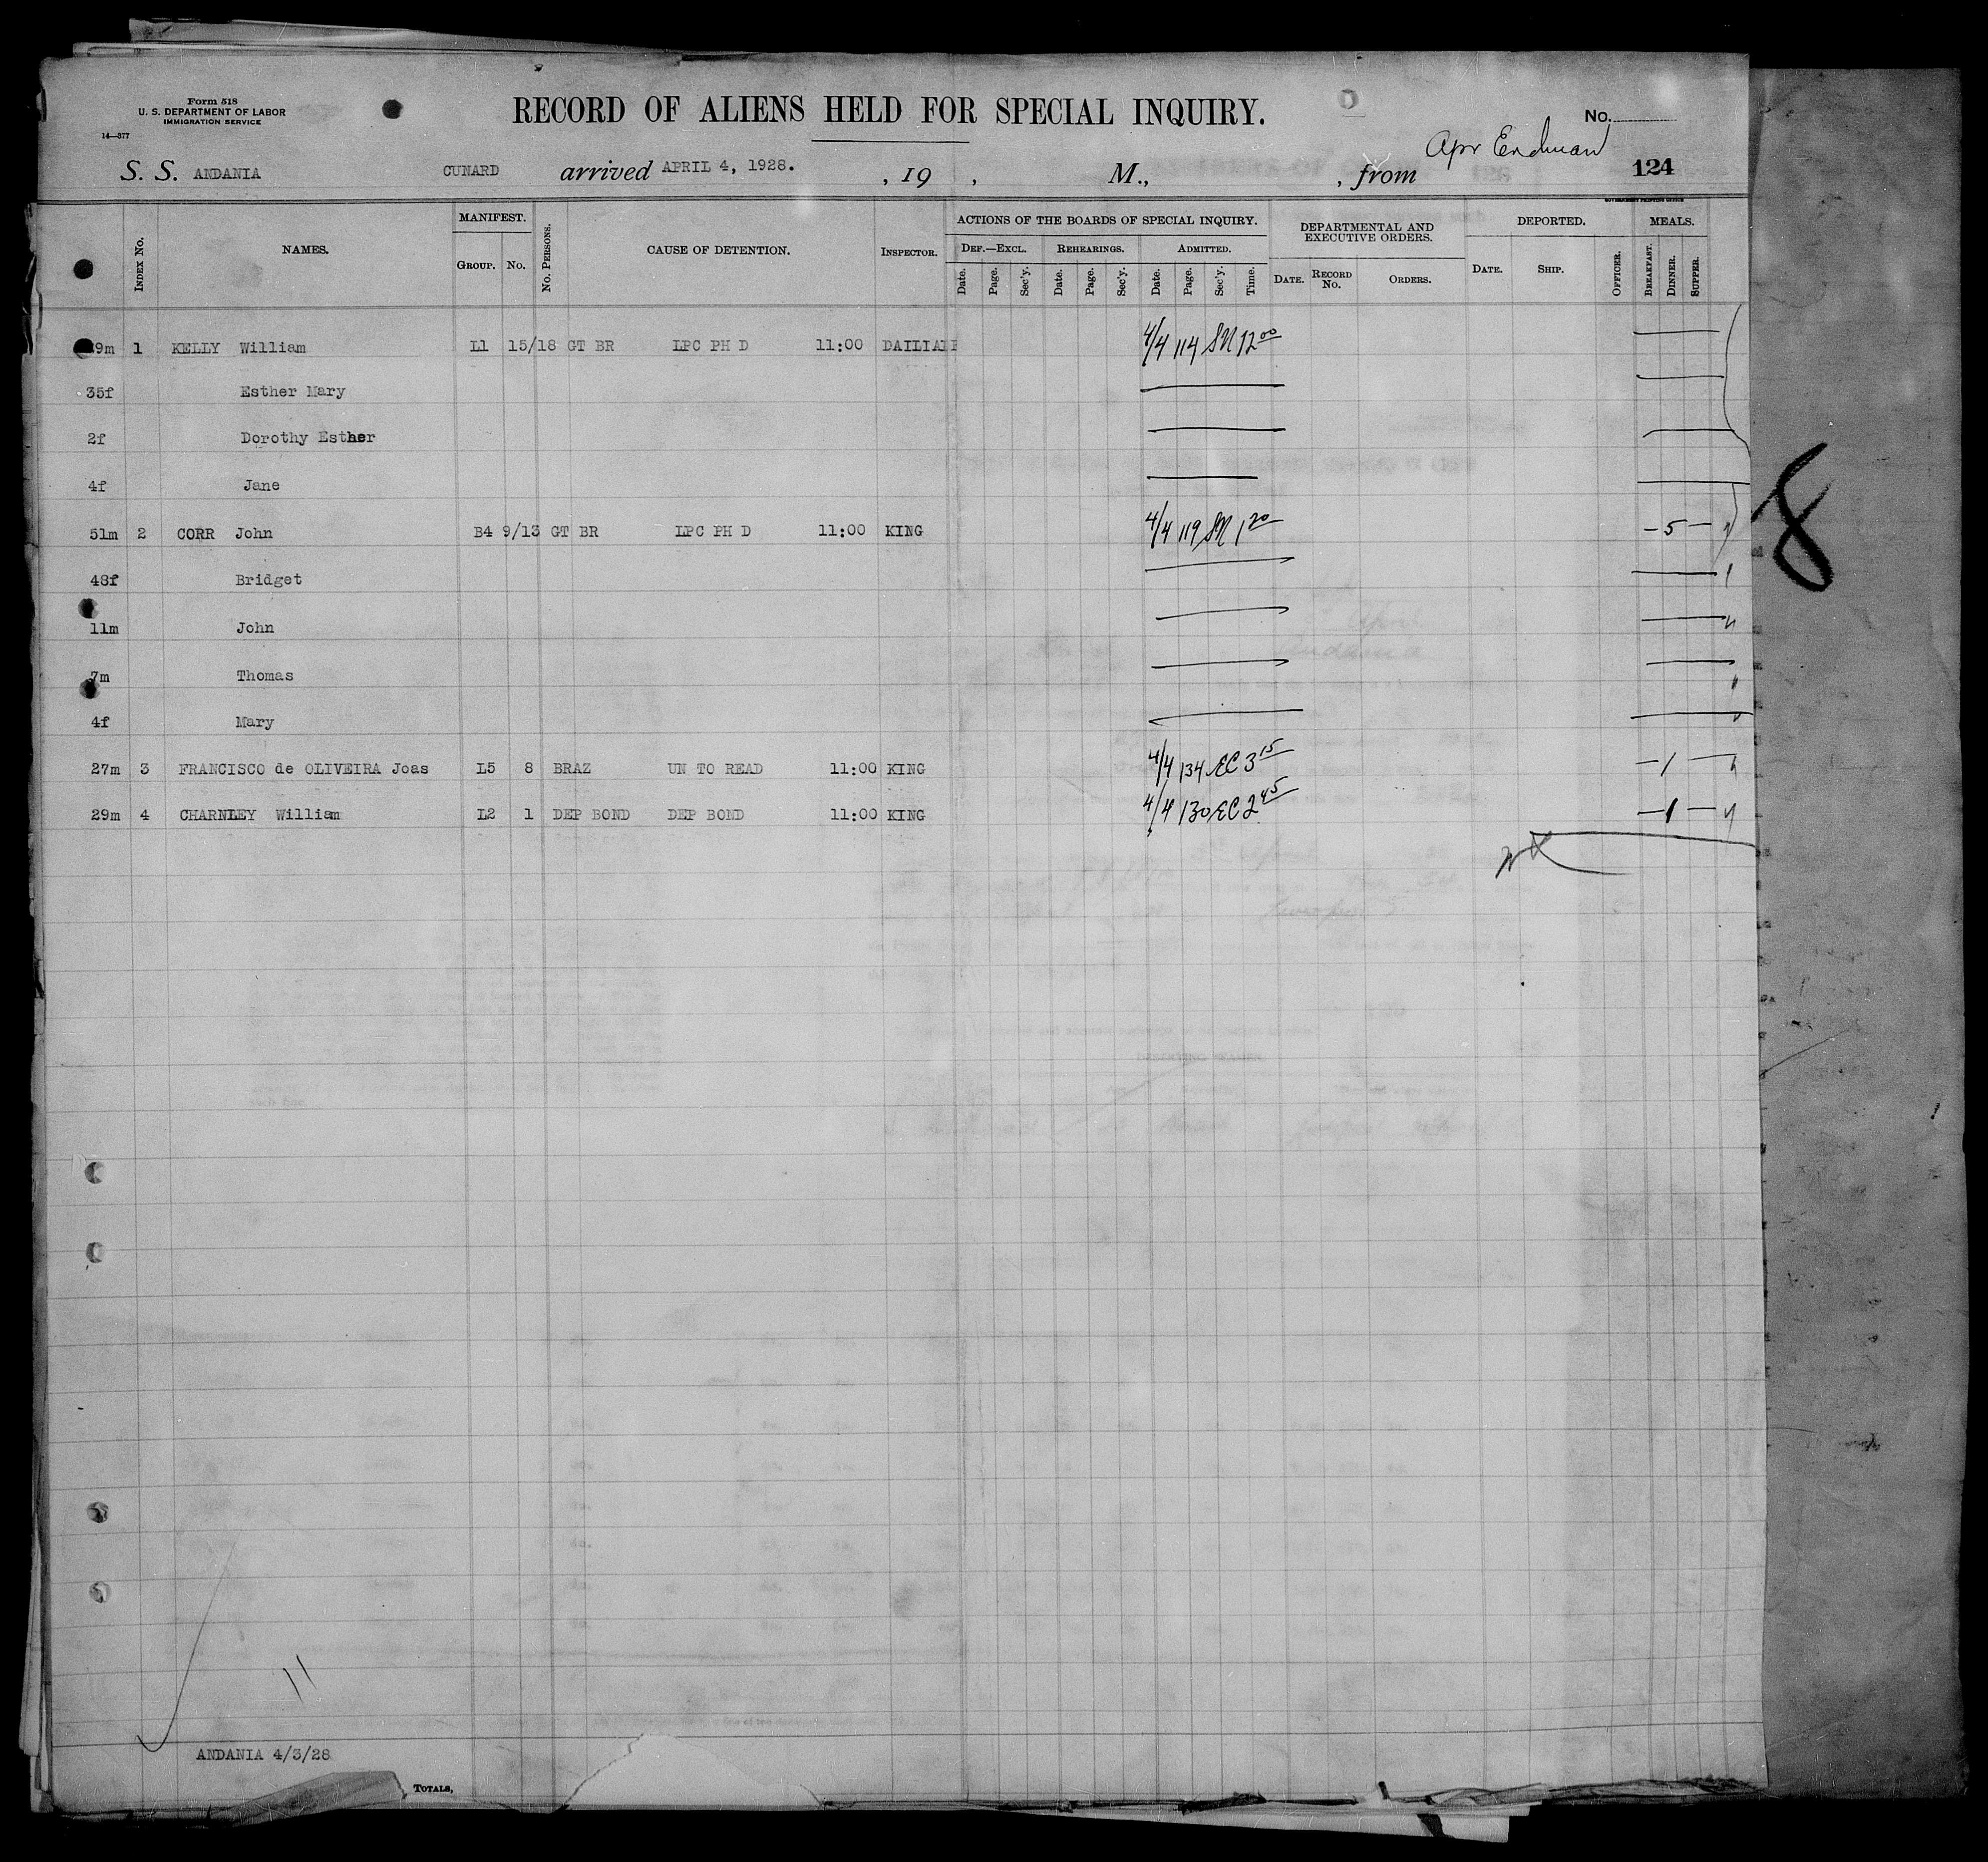 Form 518
U. S. DEPARTMENT OF LABOR
IMMIGRATION SERVICE
14—377
RECORD OF ALIENS HELD FOR SPECIAL INQUIRY.
No.
S. S. ANDANIA CUNARD arrived APRIL 4, 1928. , 19 , M., , from 124
GOVERNMENT PRINTING OFFICE
INDEX No. NAMES. MANIFEST. GROUP. No. No. PERSONS. CAUSE OF DETENTION. INSPECTOR. ACTIONS OF THE BOARDS OF SPECIAL INQUIRY. DEPARTMENTAL AND EXECUTIVE ORDERS. DEPORTED. MEALS.
DEF.—EXCL. REHEARINGS. ADMITTED.
Date. Page. Sec'y. Date. Page. Sec'y. Date. Page. Sec'y. Time. DATE. RECORD No. ORDERS. DATE. SHIP. OFFICER. BREAKFAST. DINNER. SUPPER.
9m 1 KELLY William L1 15/18 GT BR LPC PH D 11:00 4/4 114 SN 12 00
35f Esther Mary
2f Dorothy Esther
4f Jane
51m 2 CORR John B4 9/13 GT BR LPC PH D 11:00 KING 4/4 119 SN 1 20 — 5 —
48f Bridget
11m John
7m Thomas
4f Mary
27m 3 FRANCISCO de OLIVEIRA Joas L5 8 BRAZ UN TO READ 11:00 KING 4/4 134 EC 3 15 — 1 —
29m 4 CHARNLEY William L2 1 DEP BOND DEP BOND 11:00 KING 4/4 130 EC 2 45 — 1 —
8
11
ANDANIA 4/3/28
TOTALS,